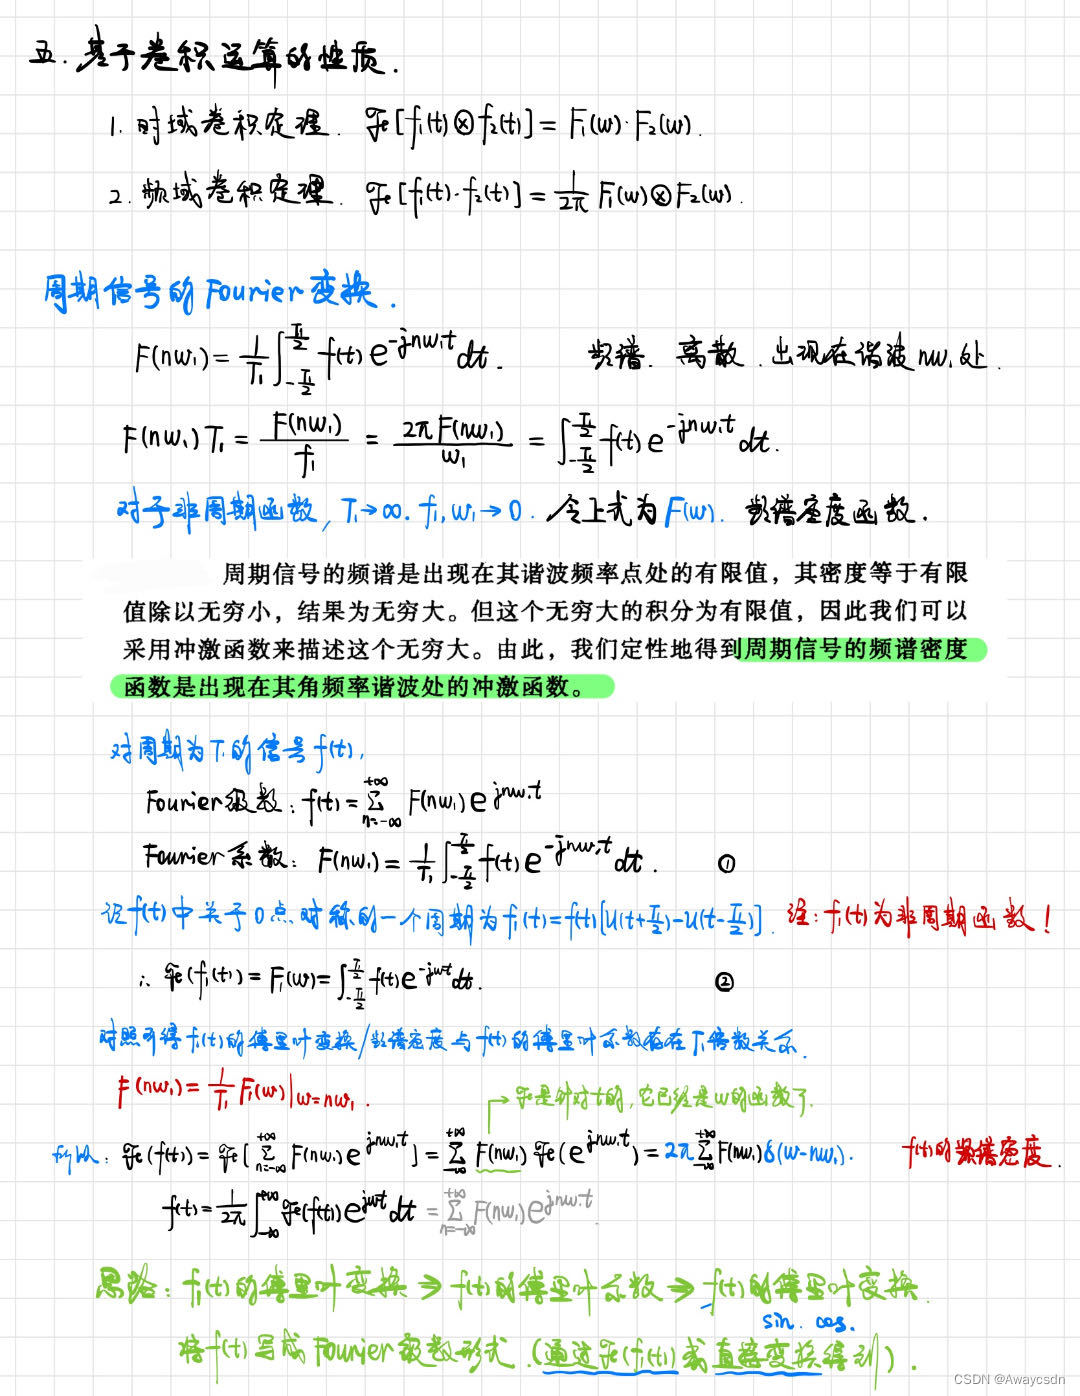 五. 基于卷积运算的性质.
1. 时域卷积定理. ℱ[f₁(t)⊗f₂(t)] = F₁(w)·F₂(w).
2. 频域卷积定理. ℱ[f₁(t)·f₂(t)] = 1/2π F₁(w)⊗F₂(w).
周期信号的Fourier变换.
F(nw₁) = 1/T₁ ∫_{-T₁/2}^{T₁/2} f(t) e^{-jnw₁t} dt. 频谱. 离散. 出现在谐波nw₁处.
F(nw₁)T₁ = F(nw₁)/f₁ = 2πF(nw₁)/w₁ = ∫_{-T₁/2}^{T₁/2} f(t) e^{-jnw₁t} dt.
对于非周期函数, T₁→∞. f₁,w₁→0. 令上式为F(w). 频谱密度函数.
周期信号的频谱是出现在其谐波频率点处的有限值，其密度等于有限
值除以无穷小，结果为无穷大。但这个无穷大的积分为有限值，因此我们可以
采用冲激函数来描述这个无穷大。由此，我们定性地得到周期信号的频谱密度
函数是出现在其角频率谐波处的冲激函数。
对周期为T₁的信号f(t),
Fourier级数: f(t) = Σ_{n=-∞}^{+∞} F(nw₁) e^{jnw₁t}
Fourier系数: F(nw₁) = 1/T₁ ∫_{-T₁/2}^{T₁/2} f(t) e^{-jnw₁t} dt. ①
记f(t)中关于0点对称的一个周期为f₁(t) = f(t)[u(t+T₁/2)-u(t-T₁/2)]. 注: f₁(t)为非周期函数!
∴ ℱ(f₁(t)) = F₁(w) = ∫_{-T₁/2}^{T₁/2} f(t) e^{-jwt} dt. ②
对照可得f₁(t)的傅里叶变换/频谱密度与f(t)的傅里叶系数存在T₁倍数关系.
F(nw₁) = 1/T₁ F₁(w)|_{w=nw₁}.
→ ℱ是针对t的, 它已经是w的函数了.
所以: ℱ(f(t)) = ℱ[Σ_{n=-∞}^{+∞} F(nw₁) e^{jnw₁t}] = Σ_{-∞}^{+∞} F(nw₁) ℱ(e^{jnw₁t}) = 2π Σ_{-∞}^{+∞} F(nw₁)δ(w-nw₁). f(t)的频谱密度.
f(t) = 1/2π ∫_{-∞}^{+∞} ℱ(f(t)) e^{jwt} dt = Σ_{n=-∞}^{+∞} F(nw₁) e^{jnw₁t}.
思路: f₁(t)的傅里叶变换 → f(t)的傅里叶系数 → f(t)的傅里叶变换.
sin. cos.
将f(t)写成Fourier级数形式. (通过ℱ(f₁(t))或直接变换得到).
CSDN @Awaycsdn